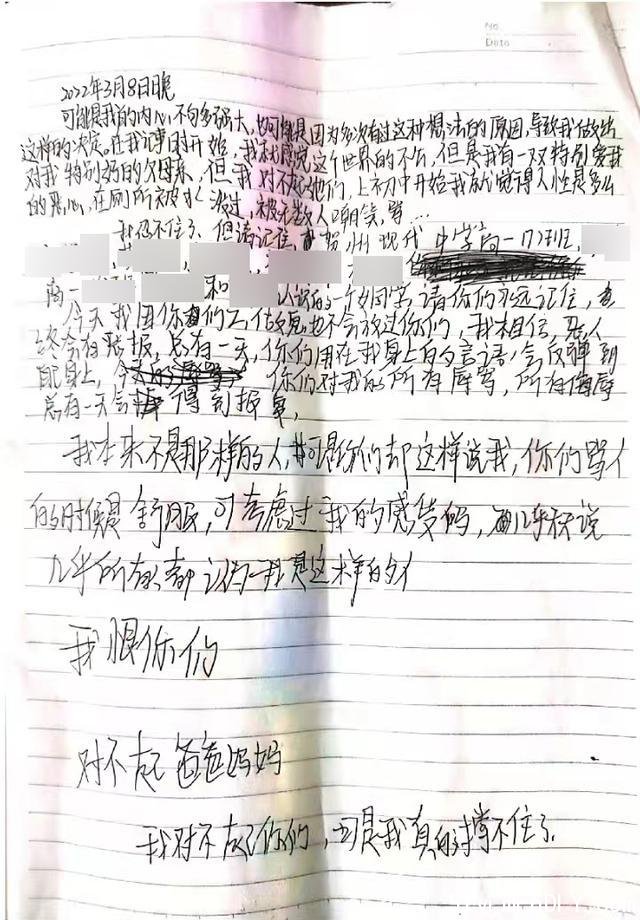 No.
Date
2022年3月8日晚
可能是我的内心不句多强大,也可能是因为多次有过这种想法的原因,导致我做出
这样的决定。在我记事时开始,我就感觉这个世界的不公,但是我有一双特别爱我
对我特别好的父母亲,但我对不起她们,上初中开始我就觉得人性是多么
的恶心,在厕所被水泼过,被无数人嘲笑,骂...
我忍不住了、但请记住,贺州现代中学高一17班,
高一 和 认识的一个女同学,请你们永远记住,
今天我因你们 也不会放过你们,我相信,恶人
终会有恶报,总有一天,你们用在我身上的言语,会反弹到
自己身上,你们对我的所有辱骂,所有侮辱
总有一天会得到报复,
我本来不是那样的人,可是你们却这样说我,你们骂人
的时候是舒服,可考虑过我的感受吗,
几乎所有都认为我是这样的人
我恨你们
对不起爸爸妈妈
我对不起你们,可是我真的撑不住了.